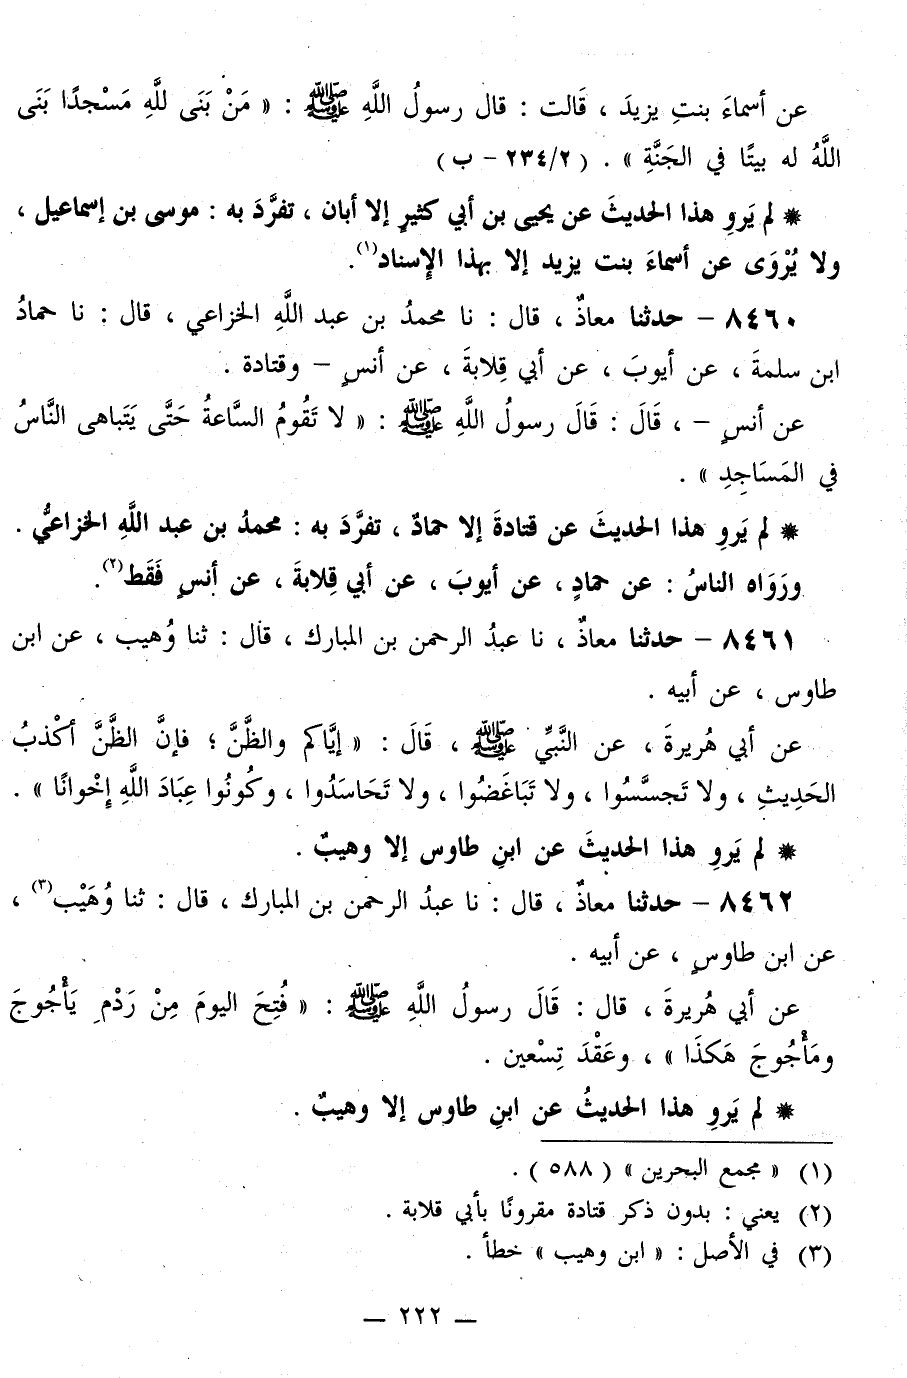 عن أسماءَ بنتِ يزيدَ ، قَالت : قال رسولُ اللَّهِ ﷺ : « مَنْ بَنَى للَّهِ مَسْجدًا بَنَى
اللَّهُ له بيتًا في الجَنَّةِ » . ( ٢٣٤/٢ - ب )
* لم يَروِ هذا الحديثَ عن يحيى بن أبي كثيرٍ إلا أبان ، تفرَّدَ به : موسى بن إسماعيل ،
ولا يُرْوَى عن أسماءَ بنت يزيد إلا بهذا الإِسناد(١).
٨٤٦٠ - حدثنا معاذٌ ، قال : نا محمدُ بن عبد اللَّهِ الخزاعي ، قال : نا حمادُ
ابن سلمةَ ، عن أيوبَ ، عن أبي قِلابةَ ، عن أنسٍ - وقتادة .
عن أنسٍ - ، قَالَ : قَالَ رسولُ اللَّهِ ﷺ : « لا تَقُومُ السَّاعةُ حَتَّى يَتَباهى النَّاسُ
في المَسَاجِدِ » .
* لم يَروِ هذا الحديثَ عن قتادةَ إلا حمادٌ ، تفرَّدَ به : محمدُ بن عبد اللَّهِ الخزاعيُّ .
ورَوَاه الناسُ : عن حمادٍ ، عن أيوبَ ، عن أبي قِلابةَ ، عن أنسٍ فَقَط(٢).
٨٤٦١ - حدثنا معاذٌ ، نا عبدُ الرحمن بن المبارك ، قال : ثنا وُهيب ، عن ابن
طاوس ، عن أبيه .
عن أبي هُريرةَ ، عن النَّبيِّ ﷺ ، قَالَ : « إيَّاكم والظَّنَّ ؛ فإنَّ الظَّنَّ أكْذبُ
الحَدِيثِ ، ولا تَجسَّسُوا ، ولا تَبَاغَضُوا ، ولا تَحَاسَدُوا ، وكُونُوا عِبَادَ اللَّهِ إخْوانًا » .
* لم يَروِ هذا الحديثَ عن ابنِ طاوس إلا وهيبٌ .
٨٤٦٢ - حدثنا معاذٌ ، قال : نا عبدُ الرحمن بن المبارك ، قال : ثنا وُهَيْب(٣) ،
عن ابن طاوسٍ ، عن أبيه .
عن أبي هُريرةَ ، قال : قَالَ رسولُ اللَّهِ ﷺ : « فُتِحَ اليومَ مِنْ رَدْمِ يَأْجُوجَ
ومَأْجُوجَ هَكذَا » ، وعَقْدَ تِسْعين .
* لم يَروِ هذا الحديثُ عن ابنِ طاوس إلا وهيبٌ .
(١) « مجمع البحرين » ( ٥٨٨ ) .
(٢) يعني : بدون ذكر قتادة مقرونًا بأبي قلابة .
(٣) في الأصل : « ابن وهيب » خطأ .
— ٢٢٢ —